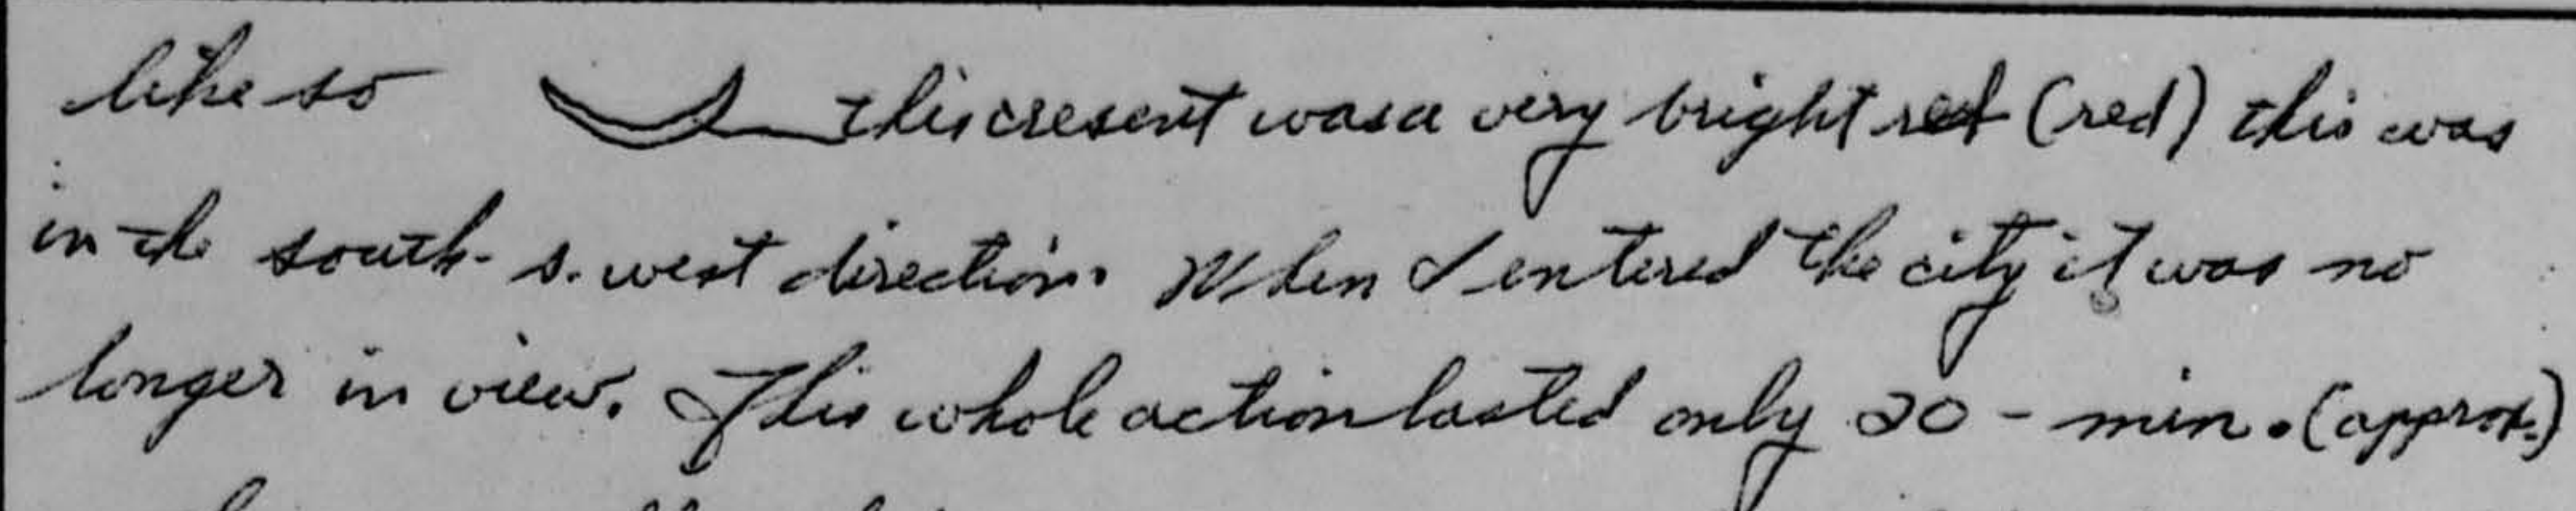 like so this cresent was a very bright red (red) this was
in the south- s. west direction. When I entered the city it was no
longer in view. This whole action lasted only 20 - min. (approx.)